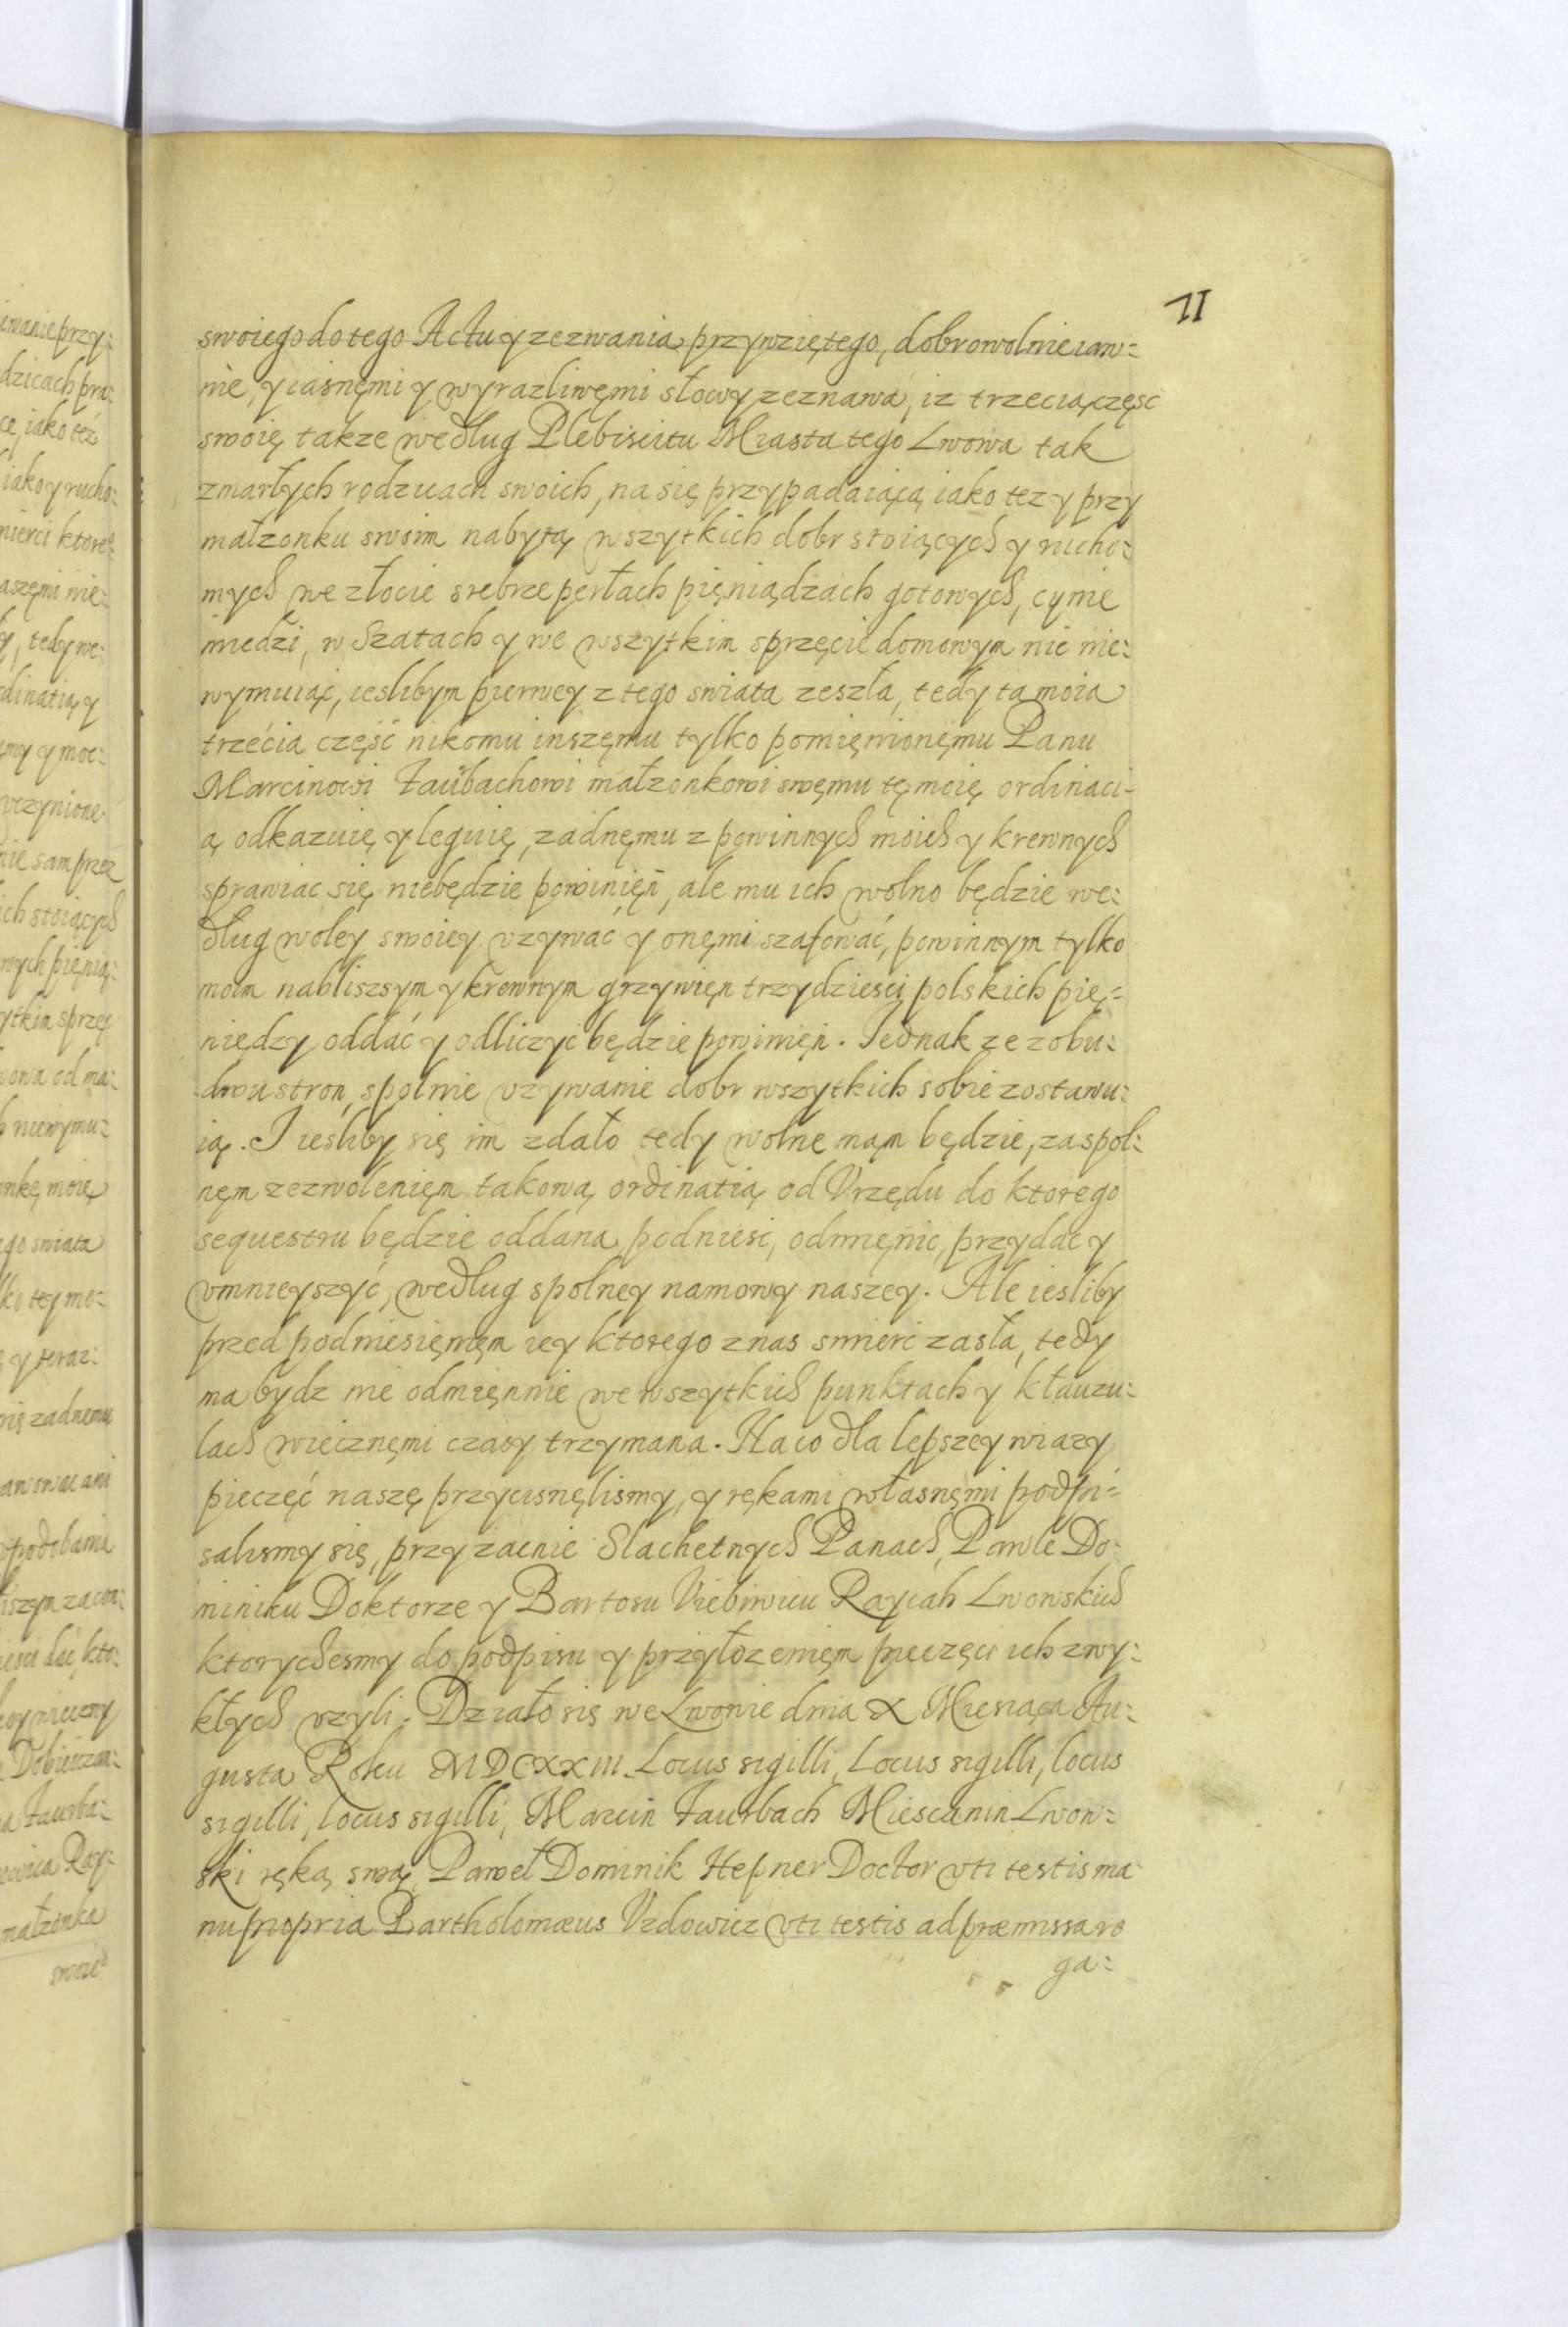 11
swoiego do tego Actu y zezwania przywziętego, dobrowolnie iaw:
nie, y iasnęmi y wyrazliwęmi słowy zeznawa, iz trzecią częsc
swoię takze według Plebiscitu Miasta tego Lwowa tak
zmarłych rodzicach swoich, na się przypadaiącą iako tez y przy
małzonku swoim nabytą wszytkich dobr stoiących y rucho:
mych we złocie srebrze perłach pięniądzach gotowych, cynie
miedzi, w Szatach y we wszytkim sprzęcie domowym nic nie:
wymuiąc, ieslibym pierwey z tego swiata zeszła, tedy ta moia
trzecia część nikomu inszęmu tylko pomięnionęmu Panu
Marcinowi Taŭbachowi małzonkowi swęmu tę moię ordinaci-
ą odkazuię y leguię, zadnęmu z powinnych moich y krewnych
sprawiac się niebędzie powinięn, ale mu ich wolno będzie we:
dług woley swoiey vzywać y onęmi szafować, powinnym tylko
moim nabliszsym y krewnym grzywięn trzydziesci polskich pię:
niędzy oddać y odliczyć będzie powinięn. Jednak ze z obu:
dwu stron, spolnie vzywanie dobr wszytkich sobie zostawu:
ią. I iesliby się im zdało tedy wolne nam będzie, za spol:
nęm zezwolenięm takową ordinatią od Vrzędu do ktorego
sequestru będzie oddana podniesc, odmięnic, przydac y
vmnieyszyć, według spolney namowy naszey. Ale iesliby
przed podniesięnięm iey ktorego z nas smierc zasła, tedy
ma bydz nie odmięnnie we wszytkich punktach y klauzu:
lach wiecznęmi czasy trzymana. Na co dla lepszey wiary
pieczęć naszę przycisnęlismy, y rękami własnęmi podpi:
salismy się, przy zacnie Slachetnych Panach, Pawle Do:
miniku Doktorze y Bartosu Vzdowicu Raycah Lwowskich
ktorychesmy do podpisu y przyłozenięm pieczęci ich zwy:
kłych vzyli. Działo się we Lwowie dnia X Miesiąca Au:
gusta Roku MDCXXIII. Locus sigilli, Locus sigilli, locus
sigilli, locus sigilli, Marcin Taurbach Miescanin Lwow:
ski ręką swą, Paweł Dominik Hepner Doctor vti testis ma
nu propria Bartholomæus Vzdowicz vti testis ad præmissa ro
ga: